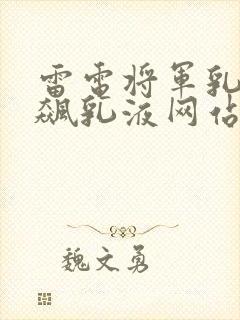 雷电将军乳
飙乳液网站
魏文勇